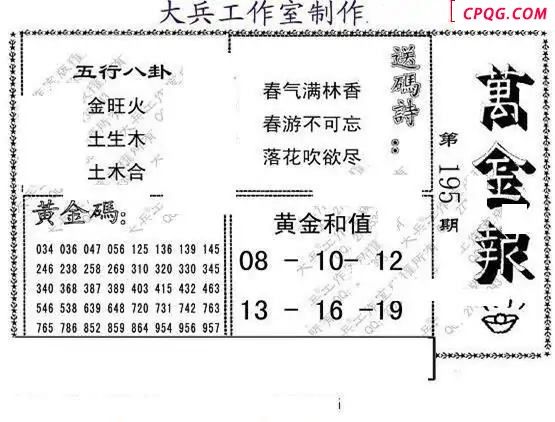 大兵工作室制作
CPQG.COM
萬金報
第195期
送碼詩:
春气满林香
春游不可忘
落花吹欲尽
五行八卦
金旺火
土生木
土木合
黃金碼:
034 036 047 056 125 136 139 145
246 238 258 269 310 320 330 345
340 368 387 389 403 415 432 463
546 538 639 648 720 731 742 763
765 786 852 859 864 954 956 957
黄金和值
08 - 10- 12
13 - 16 -19